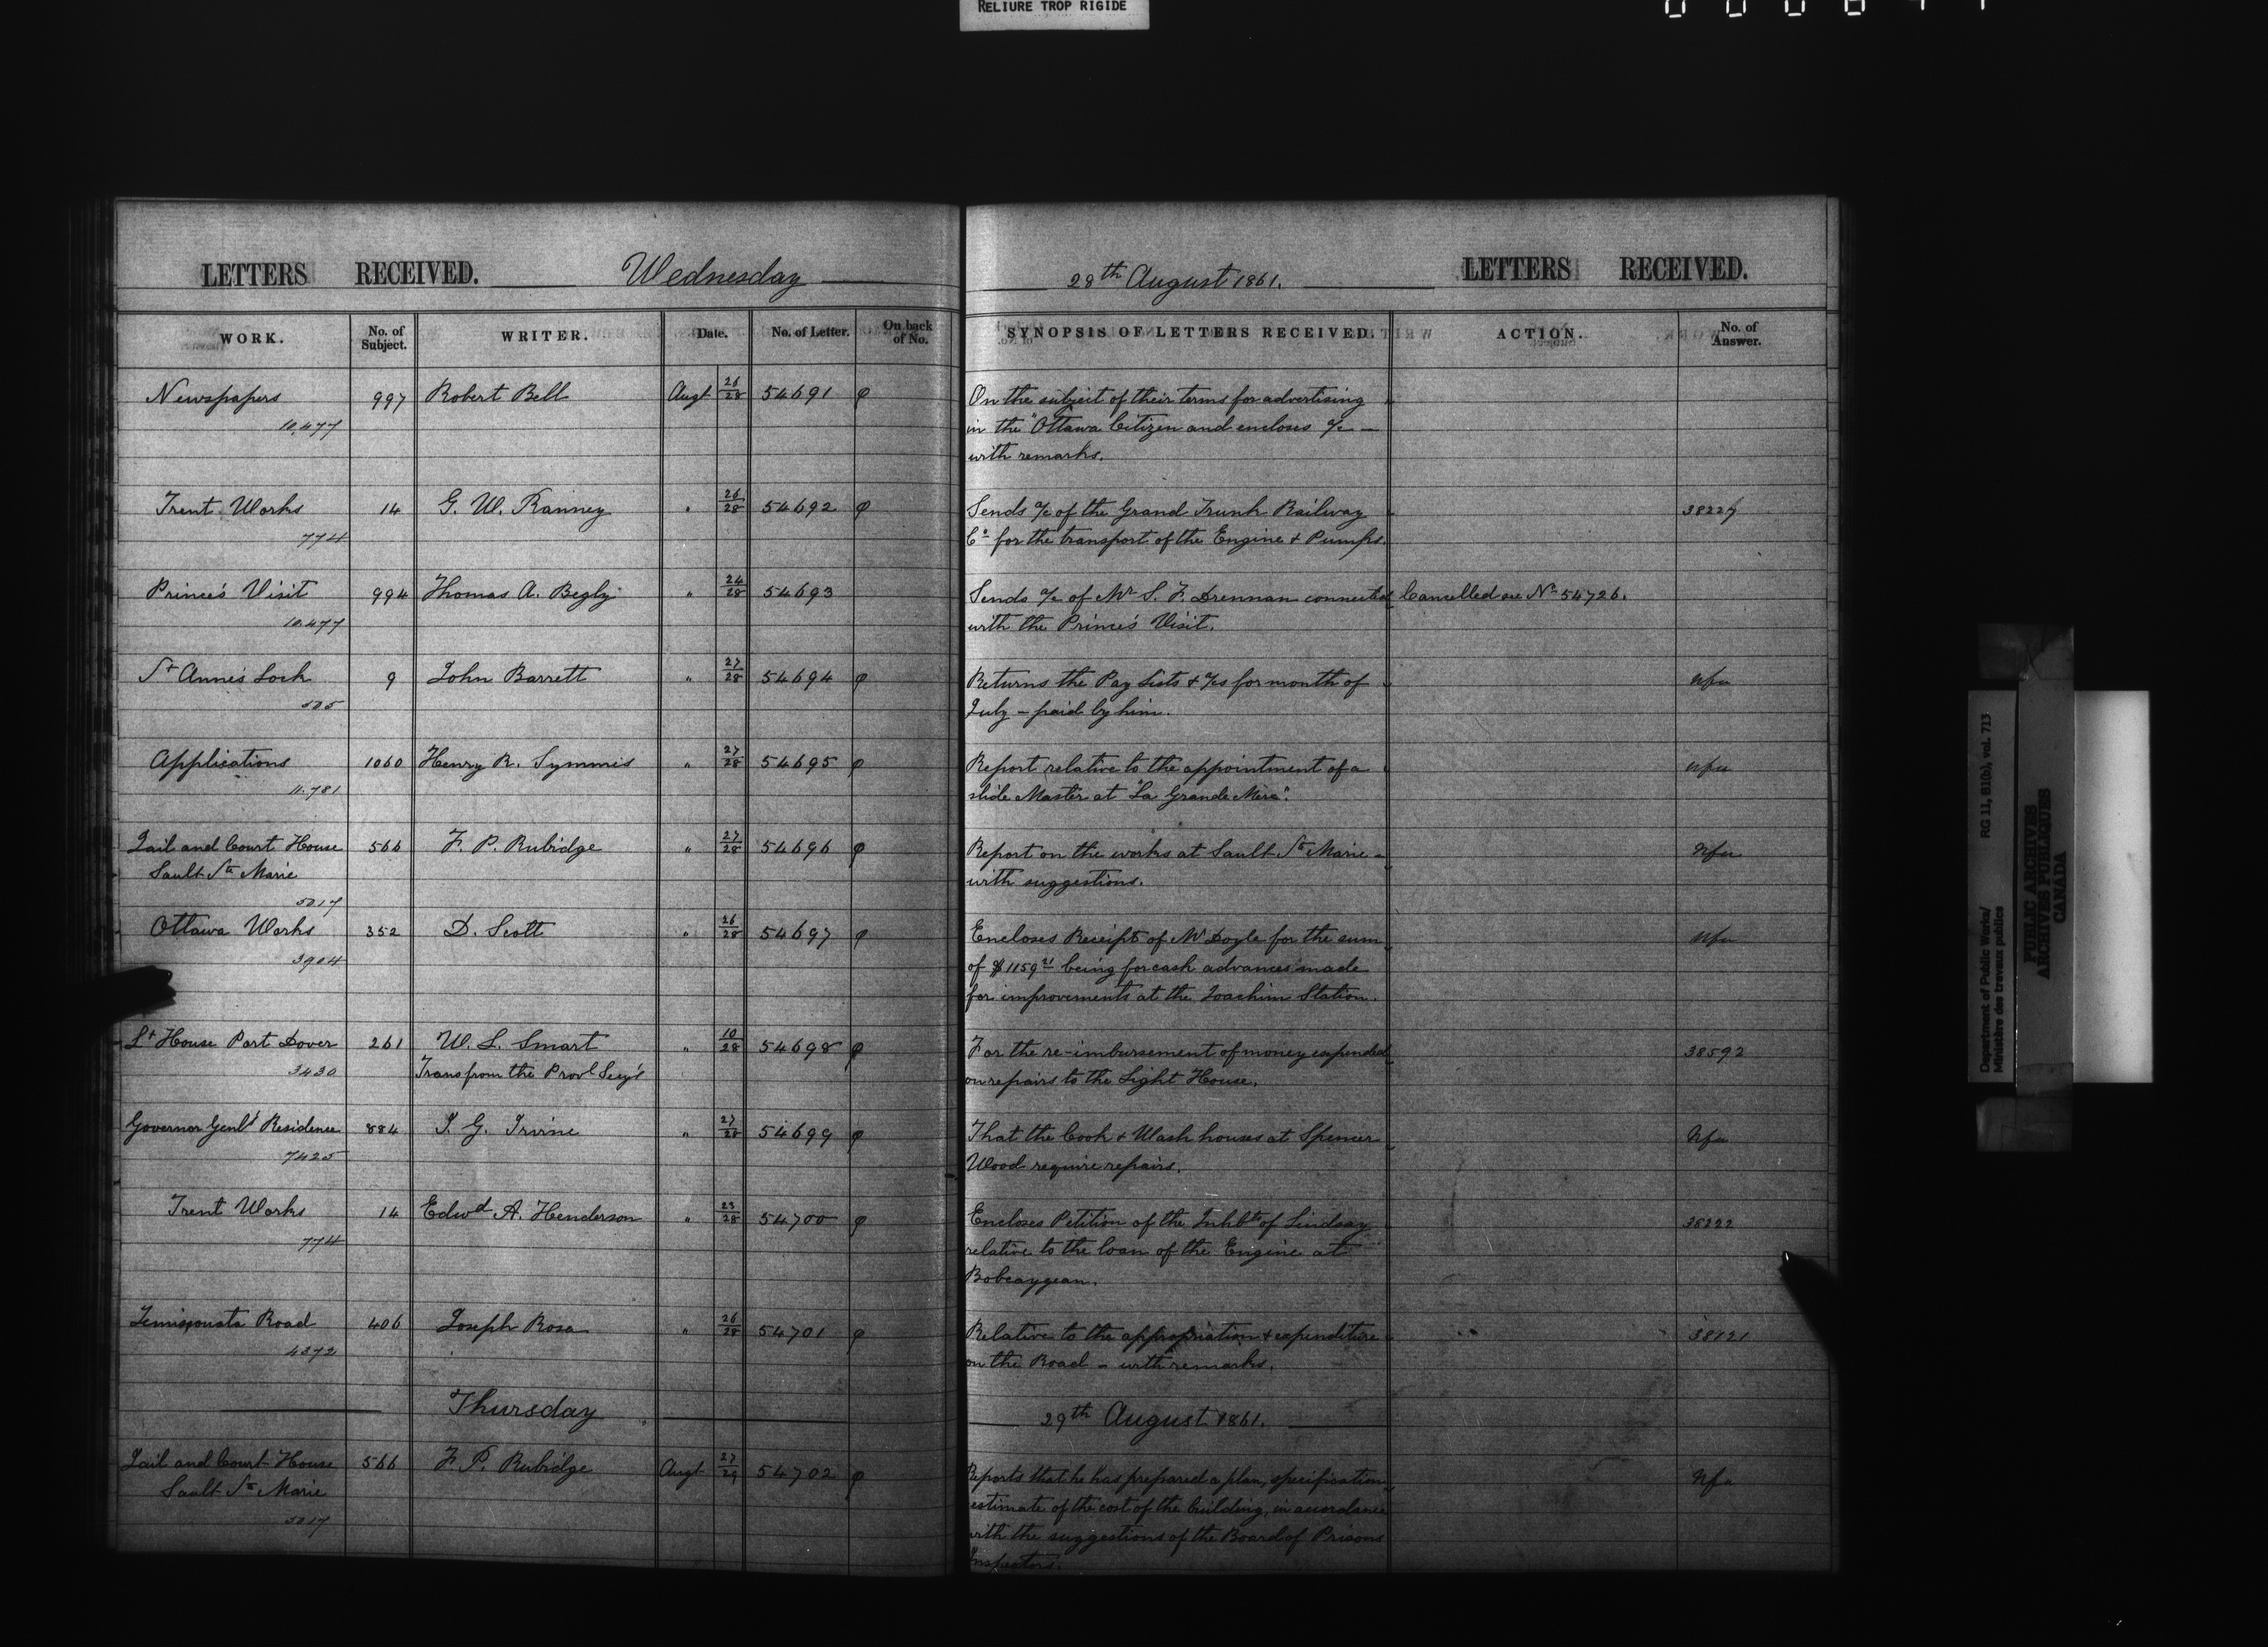 RELIURE TROP RIGIDE
LETTERS RECEIVED. Wednesday
WORK. No. of Subject. WRITER. Date. No. of Letter. On back of No.
Newspapers 997 Robert Bell Augt 26/28 54691 φ
10,477
Trent Works 14 G. W. Ranney " 26/28 54692 φ
774
Prince's Visit 994 Thomas A. Begly " 24/28 54693
10.477
St Anne's Lock 9 John Barrett " 27/28 54694 φ
505
Applications 1060 Henry R. Symmes " 27/28 54695 φ
11.781
Jail and Court House 566 F. P. Rubidge " 27/28 54696 φ
Sault Ste Marie
5017
Ottawa Works 352 D. Scott " 26/28 54697 φ
3904
Lt House Port Dover 261 W. L. Smart " 10/28 54698 φ
3430 Trans from the Provl Secy's
Governor Genl's Residence 884 J. G. Irvine " 27/28 54699 φ
7425
Trent Works 14 Edwd A. Henderson " 23/28 54700 φ
774
Temisconata Road 406 Joseph Rosa " 26/28 54701 φ
4372
Thursday
Jail and Court House 566 F. P. Rubidge Augt 27/29 54702 φ
Sault Ste Marie
5017
28th August 1861. LETTERS RECEIVED.
SYNOPSIS OF LETTERS RECEIVED. ACTION. No. of Answer.
On the subject of their terms for advertising
in the "Ottawa Citizen and encloses a/c —
with remarks.
Sends a/c of the Grand Trunk Railway 38227
Co for the transport of the Engine & Pumps.
Sends a/c of Mr S. F. Drennan connected Cancelled see No 54726.
with the Prince's Visit.
Returns the Pay Lists & a/cs for month of Nfa
July – paid by him.
Report relative to the appointment of a Nfa
slide Master at "La Grande Mère".
Report on the works at Sault Ste Marie – Nfa
with suggestions.
Encloses Receipt of Mr Doyle for the sum Nfa
of $1159 21 being for cash advances made
for improvements at the Joachim Station.
For the re-imbursement of money expended 38592
on repairs to the Light House.
That the Cook & Wash houses at Spencer Nfa
Wood require repairs.
Encloses Petition of the Inhbts of Lindsay 38222
relative to the loan of the Engine at
Bobcaygean.
Relative to the appropriation & expenditure 38121
on the Road – with remarks.
29th August 1861.
Reports that he has prepared a plan, specification Nfa
estimate of the cost of the building, in accordance
with the suggestions of the Board of Prisons
Inspectors.
Department of Public Works/ RG 11, B1(b), vol. 713
Ministère des travaux publics
PUBLIC ARCHIVES
ARCHIVES PUBLIQUES
CANADA